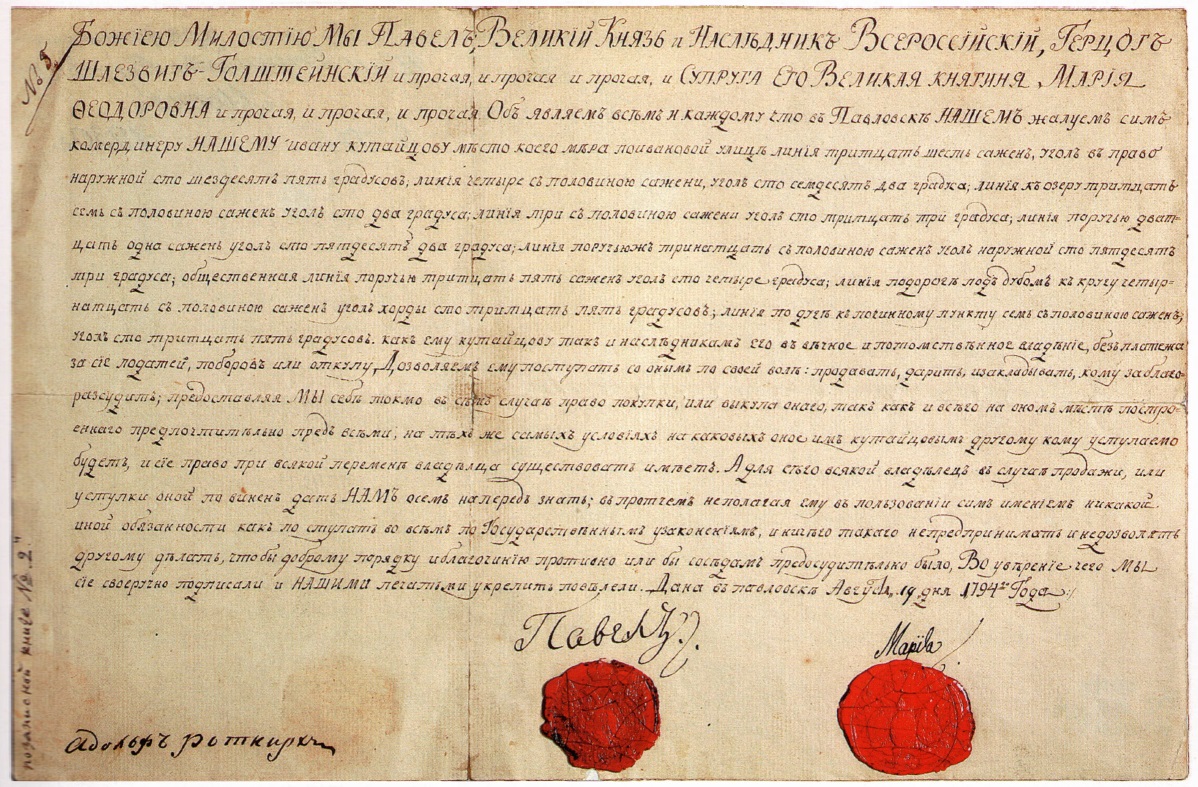 № 5.
Божіею Милостію Мы Павелъ, Великій Князь и Наслѣдникъ Всероссійскій, Герцогъ
Шлезвигъ-Голштейнскій и прогая, и прогая и прогая, и Супруга Его Великая княгиня Марія
Ѳеодоровна и прогая, и прогая, и прогая Объявляемъ всѣмъ и каждому что въ Павловскѣ НАШЕМЪ жалуемъ симъ
комердинеру НАШЕМУ ивану кутайцову мѣсто коего мѣра поивановой улицѣ линія тритцать шесть саженъ, уголъ въ право
наружной сто шездесятъ пять градусовъ; линія четыре съ половиною сажени, уголъ сто семдесятъ два градуса; линія къ озеру тритцать
семь съ половиною саженъ уголъ сто два градуса; линія три съ половиною сажени уголъ сто тритцать три градуса; линія поручью дват-
цать одна сажень уголъ сто пятдесятъ два градуса; линія поручьюжъ тринатцать съ половиною саженъ уголъ наружной сто пятдесятъ
три градуса; общественная линія поручью тритцать пять саженъ уголъ сто четыре градуса; линія подорогѣ подъ дубомъ къ кругу четыр-
натцать съ половиною саженъ уголъ хорды сто тритцать пять градусовъ; линія по дугѣ къ починному пункту семь съ половиною саженъ;
уголъ сто тритцать пять градусовъ. какъ ему кутайцову такъ и наслѣдникамъ его въ вѣчное и потомственное владѣніе, безъ платежа
за сіе податей, поборовъ или откупу, Дозволяемъ ему поступать со онымъ по своей волѣ: продавать, дарить, изакладывать, кому за благо-
разсудитъ; предоставляя МЫ себѣ токмо въ семъ случаѣ право покупки, или выкупа онаго, такъ какъ и всего на ономъ мѣстѣ постро-
еннаго предпочтительно предъ всѣми, на тѣхъ же самыхъ условіяхъ на каковыхъ оное имъ кутайцовымъ другому кому уступаемо
будетъ, и сіе право при всякой перемѣнѣ владѣлца существовать имѣетъ. А для сего всякой владѣлецъ въ случаѣ продажи, или
уступки оной по виненъ дать НАМЪ осемъ напередъ знать; впротчемъ неполагая ему въ пользованіи симъ имениемъ никакой
иной обязанности какъ по ступать во всемъ по Государственнымъ узаконеніямъ, и ничего такаго непредпринимать и недозволять
другому дѣлать, чтобы доброму порядку иблагочинію противно или бы сосѣдамъ предосудительно было, Во увѣреніе чего МЫ
сіе своеручно подписали и НАШИМИ печатьми укрепить повѣлели. Дана въ павловскѣ Августа 19 дня 1794го Года
Павелъ
Марія
Адольфъ роткирхъ
позаписной книге № 2